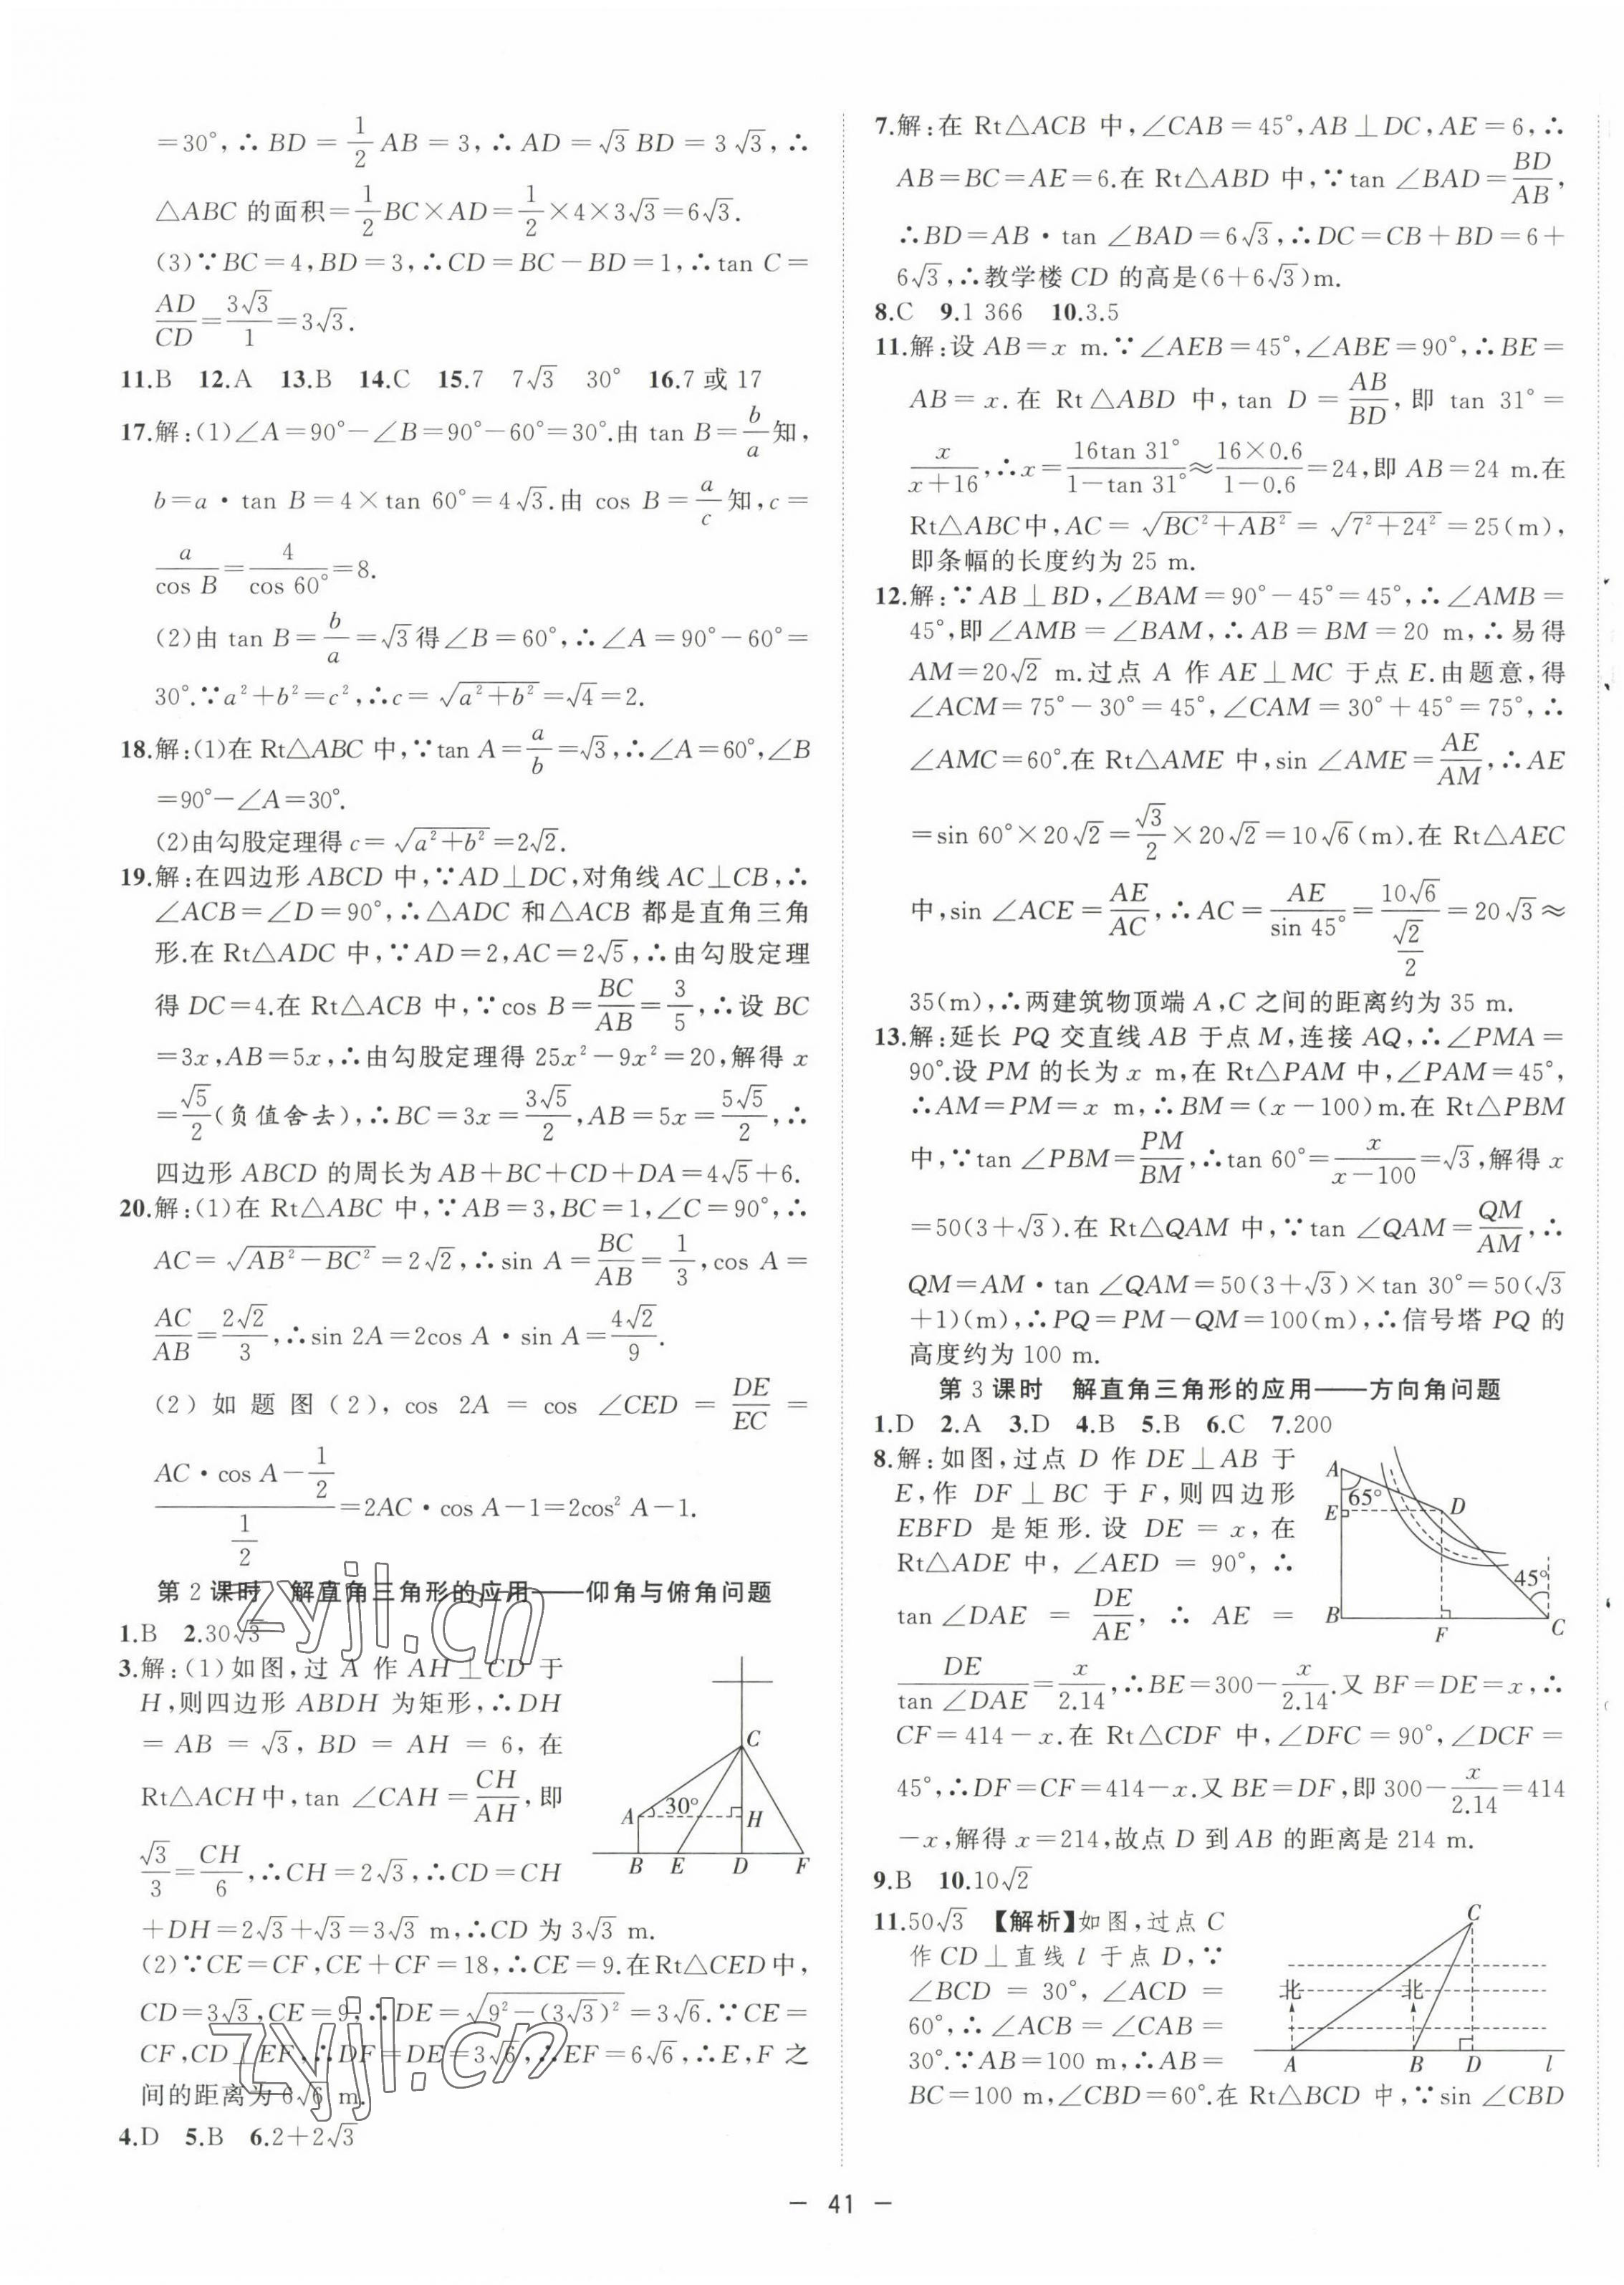 =30°,∴BD=1/2 AB=3,∴AD=√3 BD=3√3,∴
△ABC 的面积=1/2 BC×AD=1/2×4×3√3=6√3.
(3)∵BC=4,BD=3,∴CD=BC-BD=1,∴tan C=
AD/CD=3√3/1=3√3.
11.B 12.A 13.B 14.C 15.7 7√3 30° 16.7 或 17
17.解:(1)∠A=90°-∠B=90°-60°=30°.由 tan B=b/a知,
b=a·tan B=4×tan 60°=4√3.由 cos B=a/c知,c=
a/cos B=4/cos 60°=8.
(2)由 tan B=b/a=√3得∠B=60°,∴∠A=90°-60°=
30°.∵a²+b²=c²,∴c=√(a²+b²)=√4=2.
18.解:(1)在 Rt△ABC 中,∵tan A=a/b=√3,∴∠A=60°,∠B
=90°-∠A=30°.
(2)由勾股定理得 c=√(a²+b²)=2√2.
19.解:在四边形 ABCD 中,∵AD⊥DC,对角线 AC⊥CB,∴
∠ACB=∠D=90°,∴△ADC 和△ACB 都是直角三角
形.在 Rt△ADC 中,∵AD=2,AC=2√5,∴由勾股定理
得 DC=4.在 Rt△ACB 中,∵cos B=BC/AB=3/5,∴设 BC
=3x,AB=5x,∴由勾股定理得 25x²-9x²=20,解得 x
=√5/2(负值舍去),∴BC=3x=3√5/2,AB=5x=5√5/2,∴
四边形 ABCD 的周长为 AB+BC+CD+DA=4√5+6.
20.解:(1)在 Rt△ABC 中,∵AB=3,BC=1,∠C=90°,∴
AC=√(AB²-BC²)=2√2,∴sin A=BC/AB=1/3,cos A=
AC/AB=2√2/3,∴sin 2A=2cos A·sin A=4√2/9.
(2)如题图(2),cos 2A=cos ∠CED=DE/EC=
(AC·cos A-1/2)/(1/2)=2AC·cos A-1=2cos² A-1.
第 2 课时 解直角三角形的应用——仰角与俯角问题
1.B 2.30√3
3.解:(1)如图,过 A 作 AH⊥CD 于
H,则四边形 ABDH 为矩形,∴DH
=AB=√3,BD=AH=6,在
Rt△ACH中,tan ∠CAH=CH/AH,即
√3/3=CH/6,∴CH=2√3,∴CD=CH
+DH=2√3+√3=3√3 m,∴CD 为 3√3 m.
(2)∵CE=CF,CE+CF=18,∴CE=9.在Rt△CED中,
CD=3√3,CE=9,∴DE=√(9²-(3√3)²)=3√6.∵CE=
CF,CD⊥EF,∴DF=DE=3√6,∴EF=6√6,∴E,F 之
间的距离为 6√6 m.
C
A 30° H
B E D F
4.D 5.B 6.2+2√3
zyjl.cn
zyjl.cn
7.解:在 Rt△ACB 中,∠CAB=45°,AB⊥DC,AE=6,∴
AB=BC=AE=6.在 Rt△ABD 中,∵tan ∠BAD=BD/AB,
∴BD=AB·tan ∠BAD=6√3,∴DC=CB+BD=6+
6√3,∴教学楼 CD 的高是(6+6√3)m.
8.C 9.1 366 10.3.5
11.解:设 AB=x m.∵∠AEB=45°,∠ABE=90°,∴BE=
AB=x.在 Rt△ABD 中,tan D=AB/BD,即 tan 31°=
x/(x+16),∴x=16tan 31°/(1-tan 31°)≈16×0.6/(1-0.6)=24,即 AB=24 m.在
Rt△ABC中,AC=√(BC²+AB²)=√(7²+24²)=25(m),
即条幅的长度约为 25 m.
12.解:∵AB⊥BD,∠BAM=90°-45°=45°,∴∠AMB=
45°,即∠AMB=∠BAM,∴AB=BM=20 m,∴易得
AM=20√2 m.过点 A 作 AE⊥MC 于点 E.由题意,得
∠ACM=75°-30°=45°,∠CAM=30°+45°=75°,∴
∠AMC=60°.在 Rt△AME 中,sin ∠AME=AE/AM,∴AE
=sin 60°×20√2=√3/2×20√2=10√6(m).在 Rt△AEC
中,sin ∠ACE=AE/AC,∴AC=AE/sin 45°=10√6/(√2/2)=20√3≈
35(m),∴两建筑物顶端 A,C 之间的距离约为 35 m.
13.解:延长 PQ 交直线 AB 于点 M,连接 AQ,∴∠PMA=
90°.设 PM 的长为 x m,在 Rt△PAM 中,∠PAM=45°,
∴AM=PM=x m,∴BM=(x-100)m.在 Rt△PBM
中,∵tan ∠PBM=PM/BM,∴tan 60°=x/(x-100)=√3,解得 x
=50(3+√3).在 Rt△QAM 中,∵tan ∠QAM=QM/AM,∴
QM=AM·tan ∠QAM=50(3+√3)×tan 30°=50(√3
+1)(m),∴PQ=PM-QM=100(m),∴信号塔 PQ 的
高度约为 100 m.
第 3 课时 解直角三角形的应用——方向角问题
1.D 2.A 3.D 4.B 5.B 6.C 7.200
8.解:如图,过点 D 作 DE⊥AB 于
E,作 DF⊥BC 于 F,则四边形
EBFD 是矩形.设 DE=x,在
Rt△ADE 中,∠AED=90°,∴
tan ∠DAE=DE/AE,∴AE=
DE/tan ∠DAE=x/2.14,∴BE=300-x/2.14.又 BF=DE=x,∴
CF=414-x.在 Rt△CDF 中,∠DFC=90°,∠DCF=
45°,∴DF=CF=414-x.又 BE=DF,即 300-x/2.14=414
-x,解得 x=214,故点 D 到 AB 的距离是 214 m.
A
65°
E D
45°
B F C
9.B 10.10√2
11.50√3 【解析】如图,过点 C
作 CD⊥直线 l 于点 D,∵
∠BCD=30°,∠ACD=
60°,∴∠ACB=∠CAB=
30°.∵AB=100 m,∴AB=
BC=100 m,∠CBD=60°.在 Rt△BCD 中,∵sin ∠CBD
C
北 北
A B D l
— 41 —